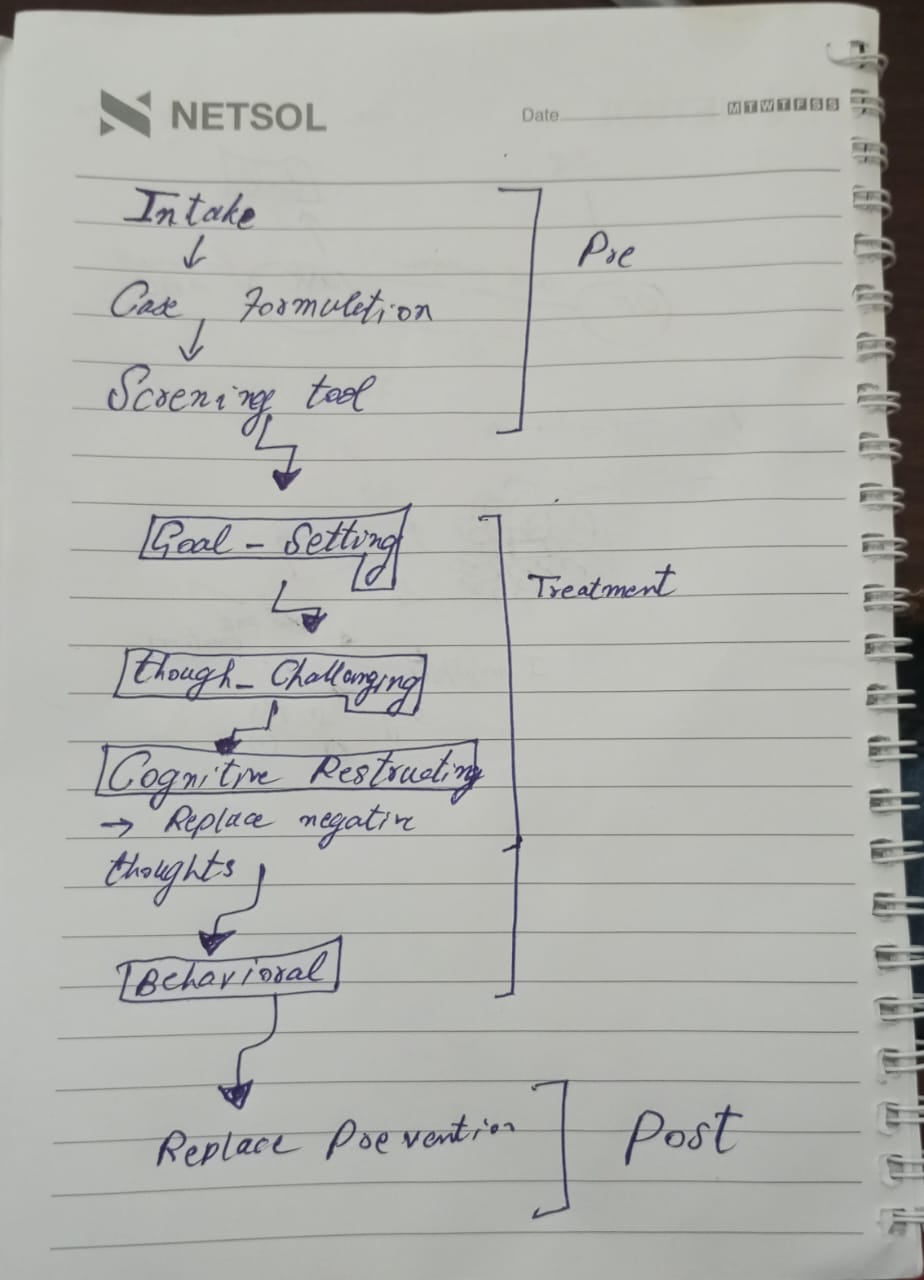 NETSOL
Date
M T W T F S S
Intake
Pre
Case Formuletion
Screning tool
Goal - Setting
Treatment
though - Challanging
Cognitive Restructing
→ Replace negative
thoughts
Behavioral
Replace Prevention
Post